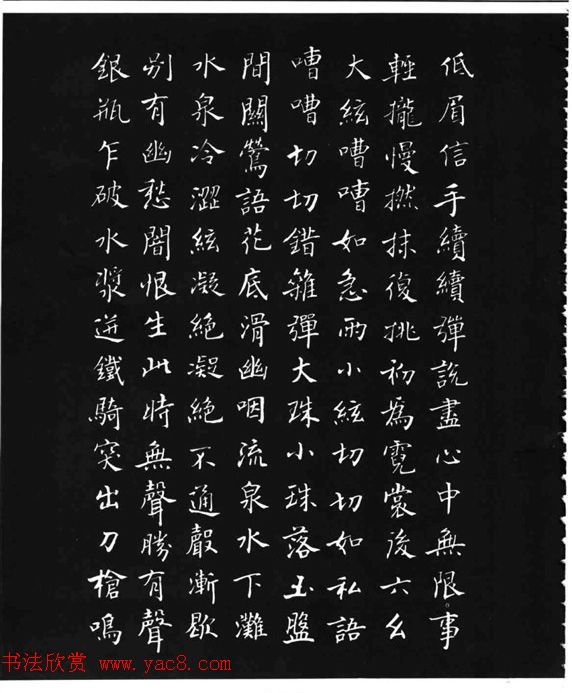 低眉信手續續彈說盡心中無限事
輕攏慢撚抹復挑初為霓裳後六幺
大絃嘈嘈如急雨小絃切切如私語
嘈嘈切切錯雜彈大珠小珠落玉盤
間關鶯語花底滑幽咽流泉水下灘
水泉冷澀絃凝絕凝絕不通聲漸歇
別有幽愁闇恨生此時無聲勝有聲
銀瓶乍破水漿迸鐵騎突出刀槍鳴
书法欣赏 www.yac8.com